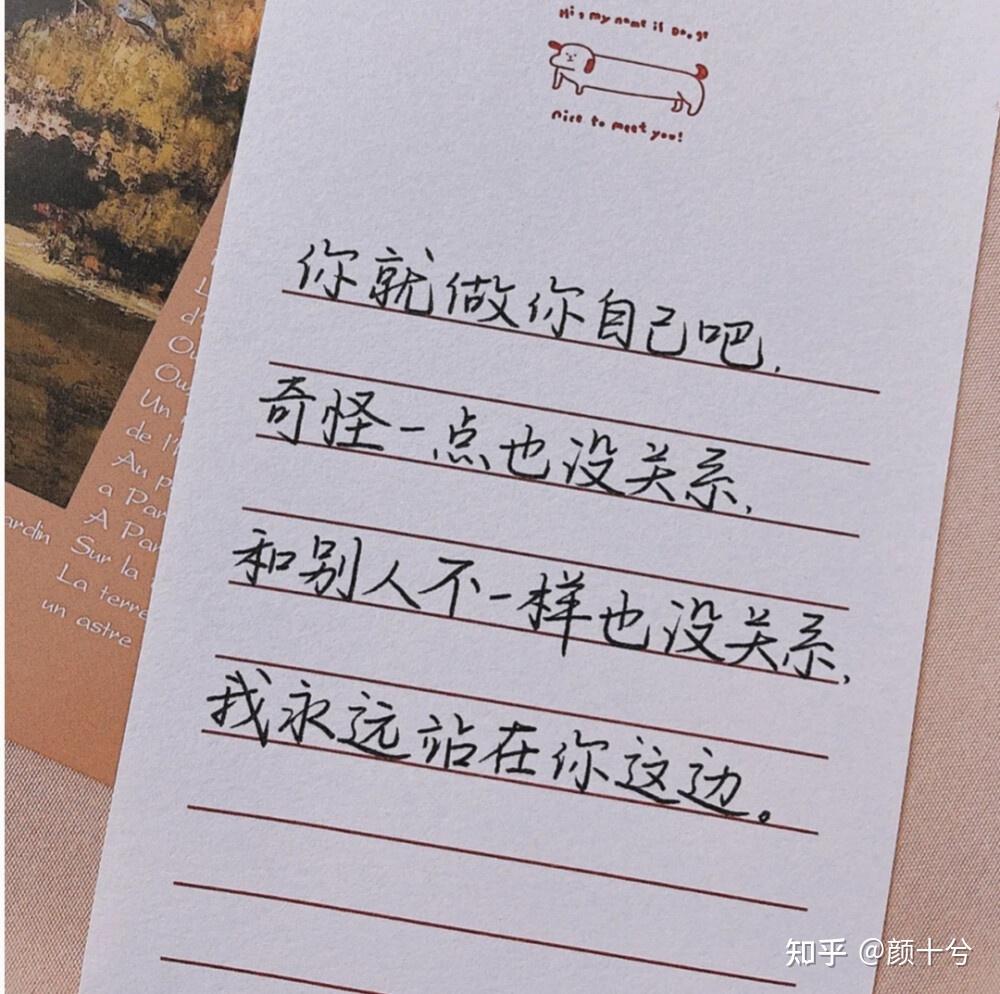 Hi, my name is Doge
nice to meet you!
你就做你自己吧,
奇怪一点也没关系,
和别人不一样也没关系,
我永远站在你这边。
d'
Ou
Un
de l'
Au p
a Par
A Par
ardin Sur la
La terre
un astre
知乎 @颜十兮